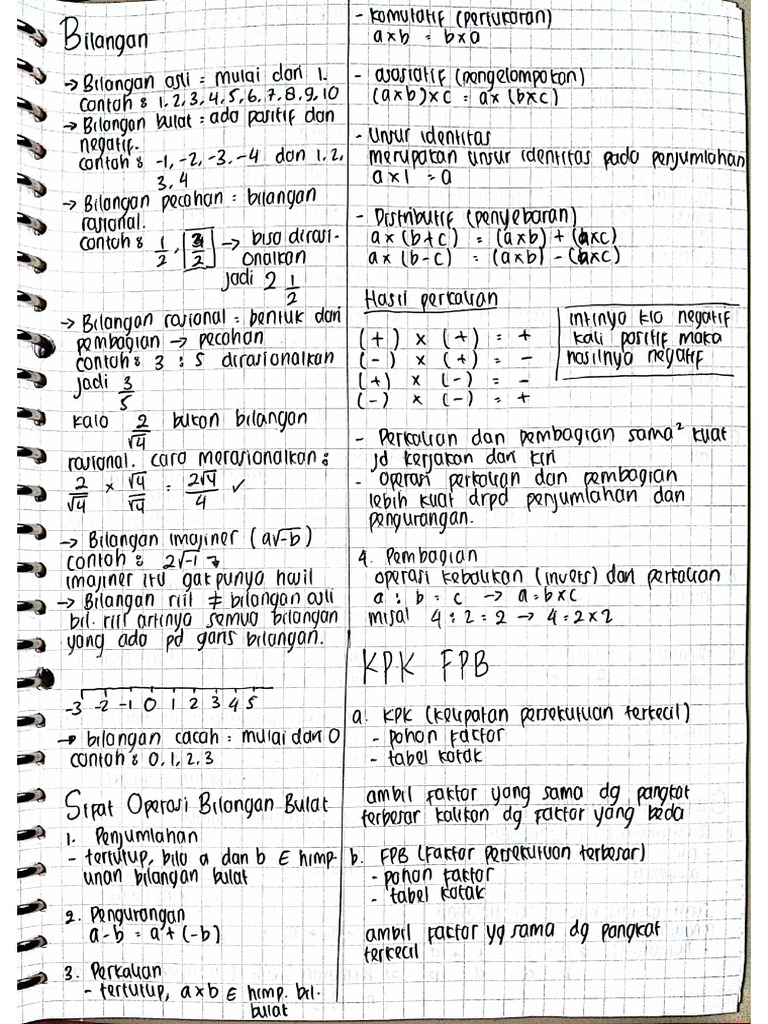 Bilangan
→ Bilangan asli = mulai dari 1.
contoh : 1, 2, 3, 4, 5, 6, 7, 8, 9, 10
→ Bilangan bulat = ada positif dan
negatif.
contoh : -1, -2, -3, -4 dan 1, 2,
3, 4
→ Bilangan pecahan = bilangan
rasional.
contoh : 1/2, 3/2 → bisa dirasi-
onalkan
jadi 2 1/2
→ Bilangan rasional = bentuk dari
pembagian → pecahan
contoh : 3 : 5 dirasionalkan
jadi 3/5
kalo 2/√4 bukan bilangan
rasional. cara merasionalkan :
2/√4 × √4/√4 = 2√4/4 ✓
→ Bilangan imajiner (a√-b)
contoh : 2√-1 ↴
imajiner itu gak punya hasil
→ Bilangan riil ≠ bilangan asli
bil. riil artinya semua bilangan
yang ada pd garis bilangan.
-3 -2 -1 0 1 2 3 4 5
→ bilangan cacah = mulai dari 0
contoh : 0, 1, 2, 3
Sifat Operasi Bilangan Bulat
1. Penjumlahan
- tertutup, bila a dan b ∈ himp-
unan bilangan bulat
2. Pengurangan
a - b = a + (-b)
3. Perkalian
- tertutup, a×b ∈ himp. bil.
bulat
- Komutatif (pertukaran)
a×b = b×a
- asosiatif (pengelompokan)
(a×b)×c = a×(b×c)
- Unsur identitas
merupakan unsur identitas pada penjumlahan
a×1 = a
- Distributif (penyebaran)
a×(b+c) = (a×b) + (a×c)
a×(b-c) = (a×b) - (a×c)
Hasil perkalian
(+) × (+) = +
(-) × (+) = -
(+) × (-) = -
(-) × (-) = +
intinya klo negatif
kali positif maka
hasilnya negatif
- Perkalian dan pembagian sama² kuat
jd kerjakan dari kiri
- operasi perkalian dan pembagian
lebih kuat drpd penjumlahan dan
pengurangan.
4. Pembagian
operasi kebalikan (invers) dari perkalian
a : b = c → a = b×c
misal 4 : 2 = 2 → 4 = 2×2
KPK FPB
a. KPK (Kelipatan persekutuan terkecil)
- pohon faktor
- tabel kotak
ambil faktor yang sama dg pangkat
terbesar kalikan dg faktor yang beda
b. FPB (Faktor persekutuan terbesar)
- pohon faktor
- tabel kotak
ambil faktor yg sama dg pangkat
terkecil